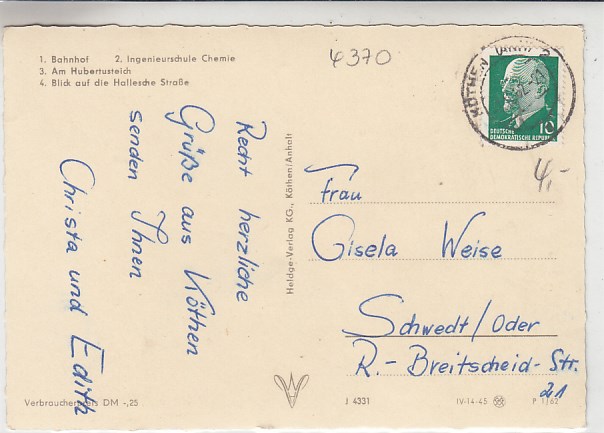 1. Bahnhof 2. Ingenieurschule Chemie
3. Am Hubertusteich
4. Blick auf die Hallesche Straße
4370
KÖTHEN (ANH
10
DEUTSCHE
DEMOKRATISCHE REPUBLIK
4,-
Recht herzliche
Grüße aus Köthen
senden Ihnen
Christa und Edith
Heldge-Verlag KG., Köthen/Anhalt
Frau
Gisela Weise
Schwedt/Oder
R.-Breitscheid-Str.
21
Verbraucherpreis DM -,25
J 4331
IV-14-45
P 1/62